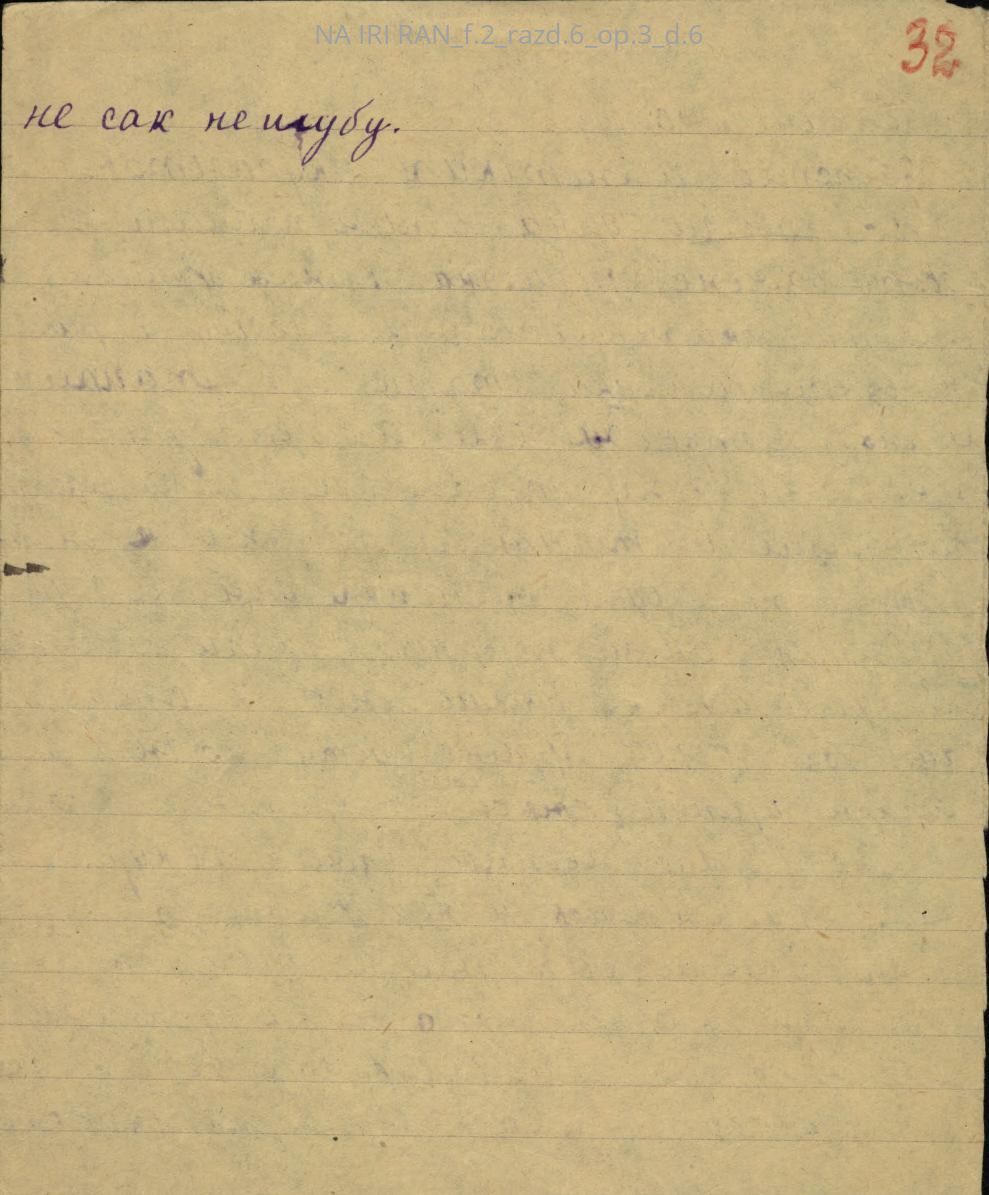 NA IRI RAN_f.2_razd.6_op.3_d.6
32
не сак не шубу.